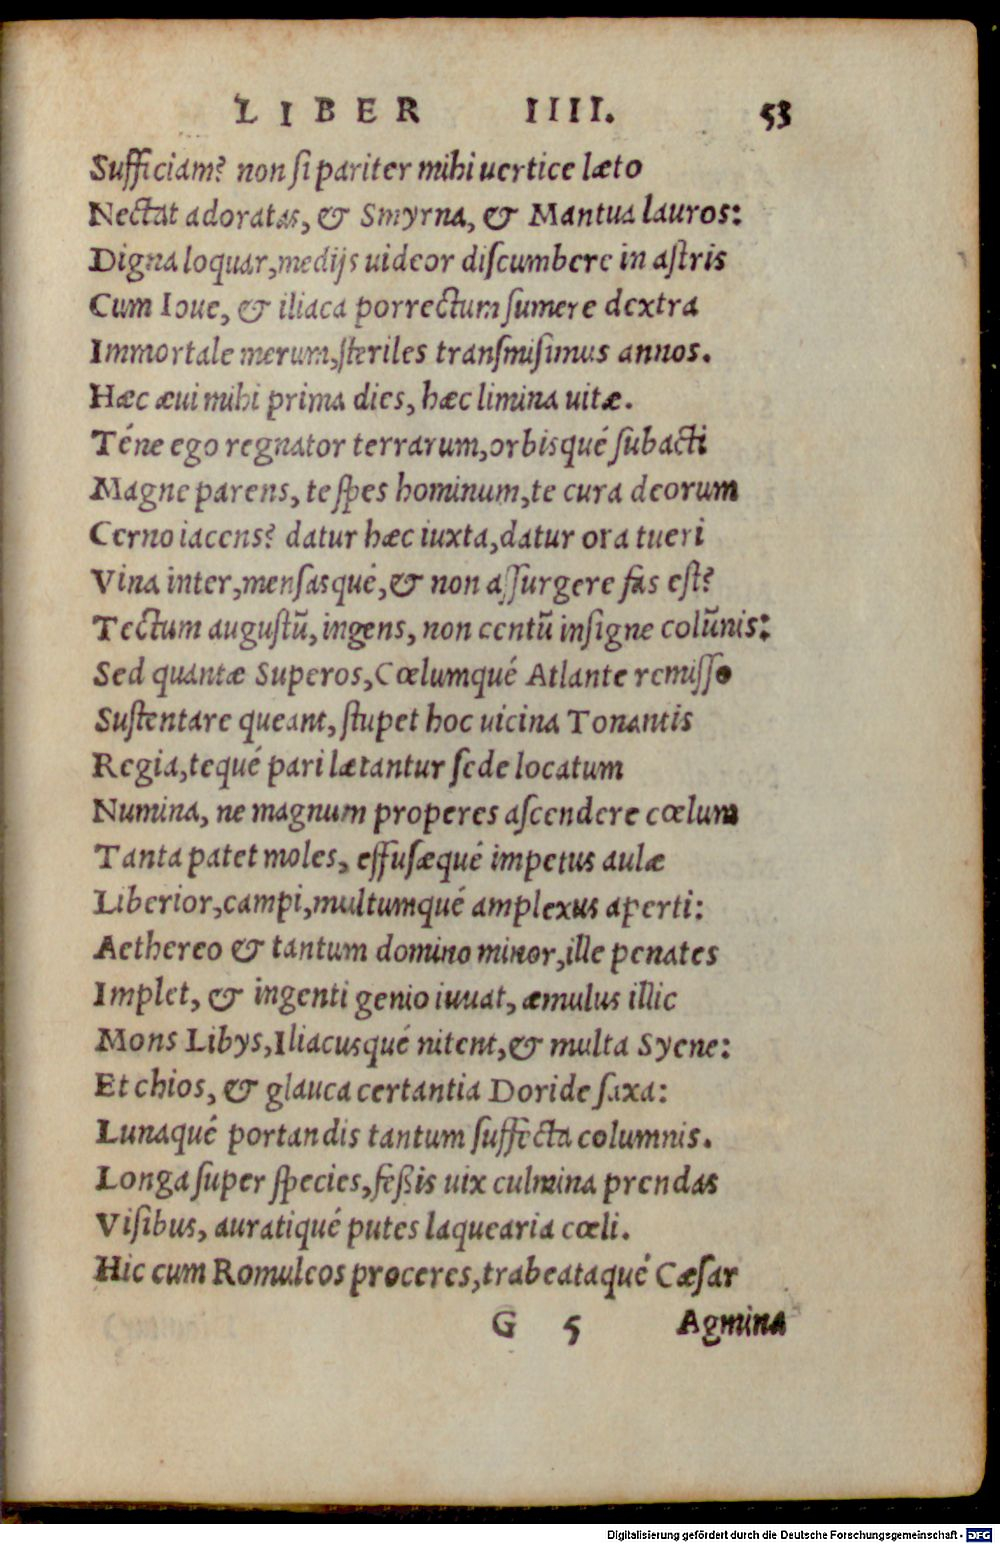 LIBER IIII. 53
Sufficiam? non si pariter mihi uertice læto
Nectat adoratas, & Smyrna, & Mantua lauros:
Digna loquar, medijs uideor discumbere in astris
Cum Ioue, & iliaca porrectum sumere dextra
Immortale merum, steriles transmisimus annos.
Hæc æui mihi prima dies, hæc limina uitæ.
Téne ego regnator terrarum, orbisqué subacti
Magne parens, te spes hominum, te cura deorum
Cerno iacens? datur hæc iuxta, datur ora tueri
Vina inter, mensasqué, & non assurgere fas est?
Tectum augustũ, ingens, non centũ insigne colũnis:
Sed quantæ Superos, Cœlumqué Atlante remisso
Sustentare queant, stupet hoc uicina Tonantis
Regia, tequé pari lætantur sede locatum
Numina, ne magnum properes ascendere cœlum
Tanta patet moles, effusæqué impetus aulæ
Liberior, campi, multumqué amplexus aperti:
Aethereo & tantum domino minor, ille penates
Implet, & ingenti genio iuuat, æmulus illic
Mons Libys, Iliacusqué nitent, & multa Syene:
Et chios, & glauca certantia Doride saxa:
Lunaqué portandis tantum suffecta columnis.
Longa super species, feßis uix culmina prendas
Visibus, auratiqué putes laquearia cœli.
Hic cum Romuleos proceres, trabeataqué Cæsar
G 5 Agmina
Digitalisierung gefördert durch die Deutsche Forschungsgemeinschaft - DFG